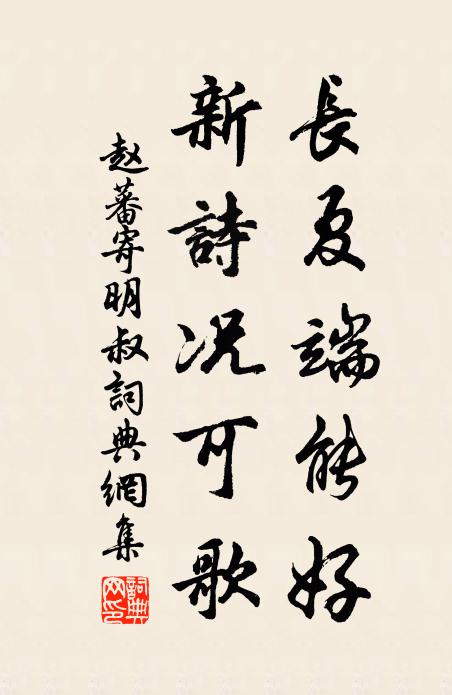 長夏端能好
新詩况可歌
赵蕃寄明叔詞典網集
詞典網印